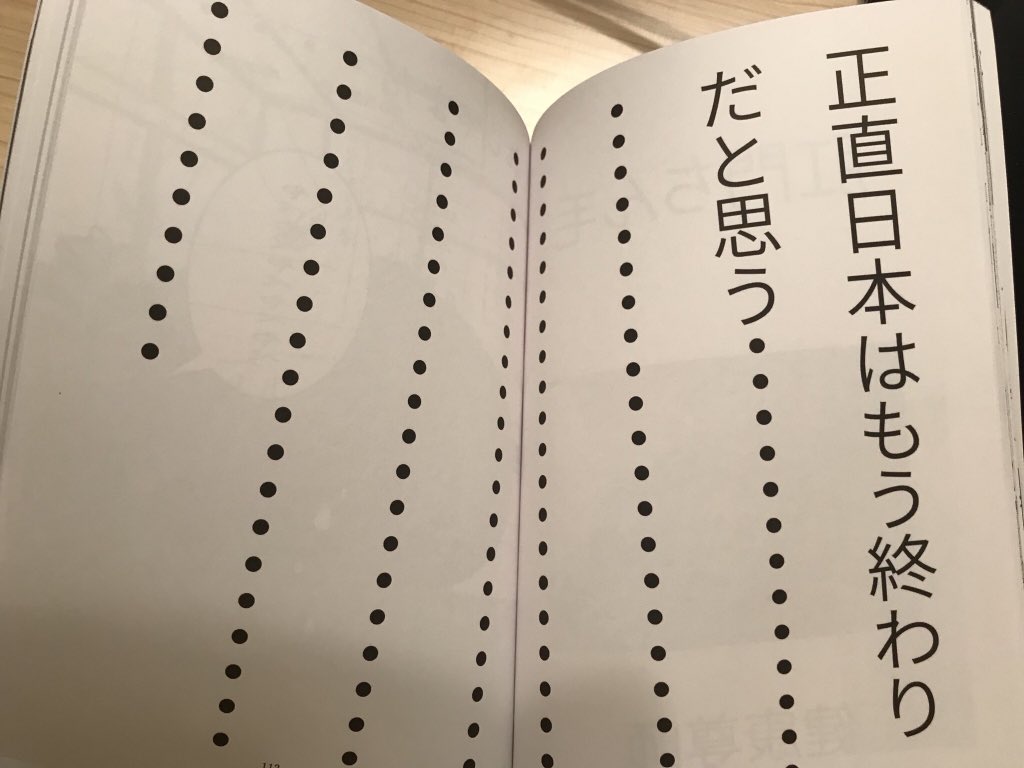 正直日本はもう終わり
だと思う・・・・・・・・・・・・・
・・・・・・・・・・・・・・・・・・・・
・・・・・・・・・・・・・・・・・・・・
・・・・・・・・・・・・・・・・・・・・
・・・・・・・・・・・・・・・・・・・・
・・・・・・・・・・・・・・・・・・・・
・・・・・・・・・・